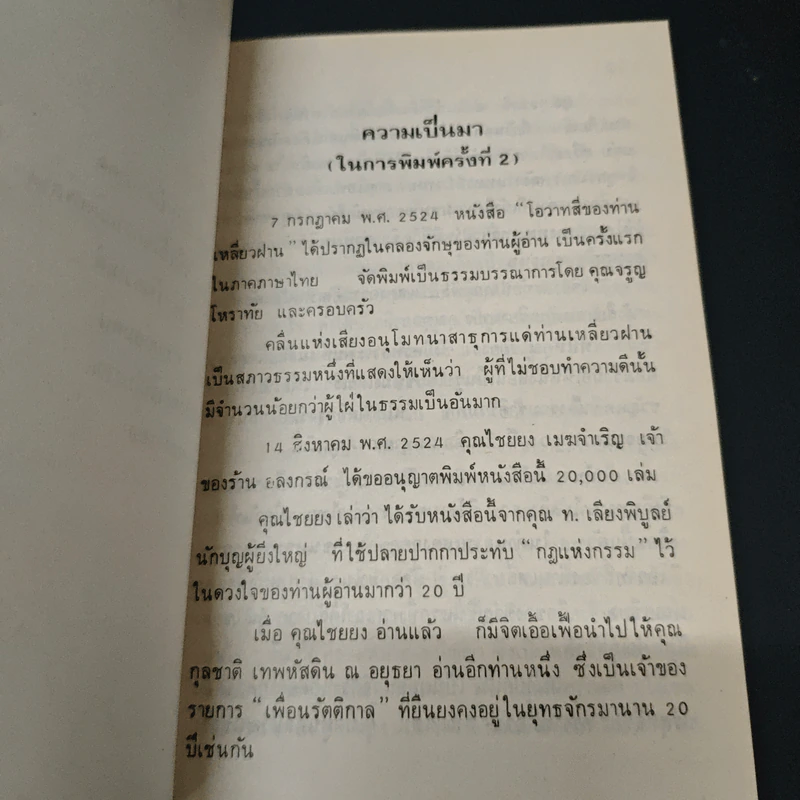 ความเป็นมา
(ในการพิมพ์ครั้งที่ 2)
7 กรกฎาคม พ.ศ. 2524 หนังสือ “โอวาทสี่ของท่าน
เหลี่ยวฝาน” ได้ปรากฏในคลองจักษุของท่านผู้อ่าน เป็นครั้งแรก
ในภาคภาษาไทย จัดพิมพ์เป็นธรรมบรรณาการโดย คุณจรูญ
โหราทัย และครอบครัว
คลื่นแห่งเสียงอนุโมทนาสาธุการแด่ท่านเหลี่ยวฝาน
เป็นสภาวธรรมหนึ่งที่แสดงให้เห็นว่า ผู้ที่ไม่ชอบทำความดีนั้น
มีจำนวนน้อยกว่าผู้ใฝ่ในธรรมเป็นอันมาก
14 สิงหาคม พ.ศ. 2524 คุณไชยยง เมฆจำเริญ เจ้า
ของร้าน อลงกรณ์ ได้ขออนุญาตพิมพ์หนังสือนี้ 20,000 เล่ม
คุณไชยยง เล่าว่า ได้รับหนังสือนี้จากคุณ ท. เลียงพิบูลย์
นักบุญผู้ยิ่งใหญ่ ที่ใช้ปลายปากกาประทับ “กฎแห่งกรรม” ไว้
ในดวงใจของท่านผู้อ่านมากว่า 20 ปี
เมื่อ คุณไชยยง อ่านแล้ว ก็มีจิตเอื้อเฟื้อนำไปให้คุณ
กุลชาติ เทพหัสดิน ณ อยุธยา อ่านอีกท่านหนึ่ง ซึ่งเป็นเจ้าของ
รายการ “เพื่อนรัตติกาล” ที่ยืนยงคงอยู่ในยุทธจักรมานาน 20
ปีเช่นกัน